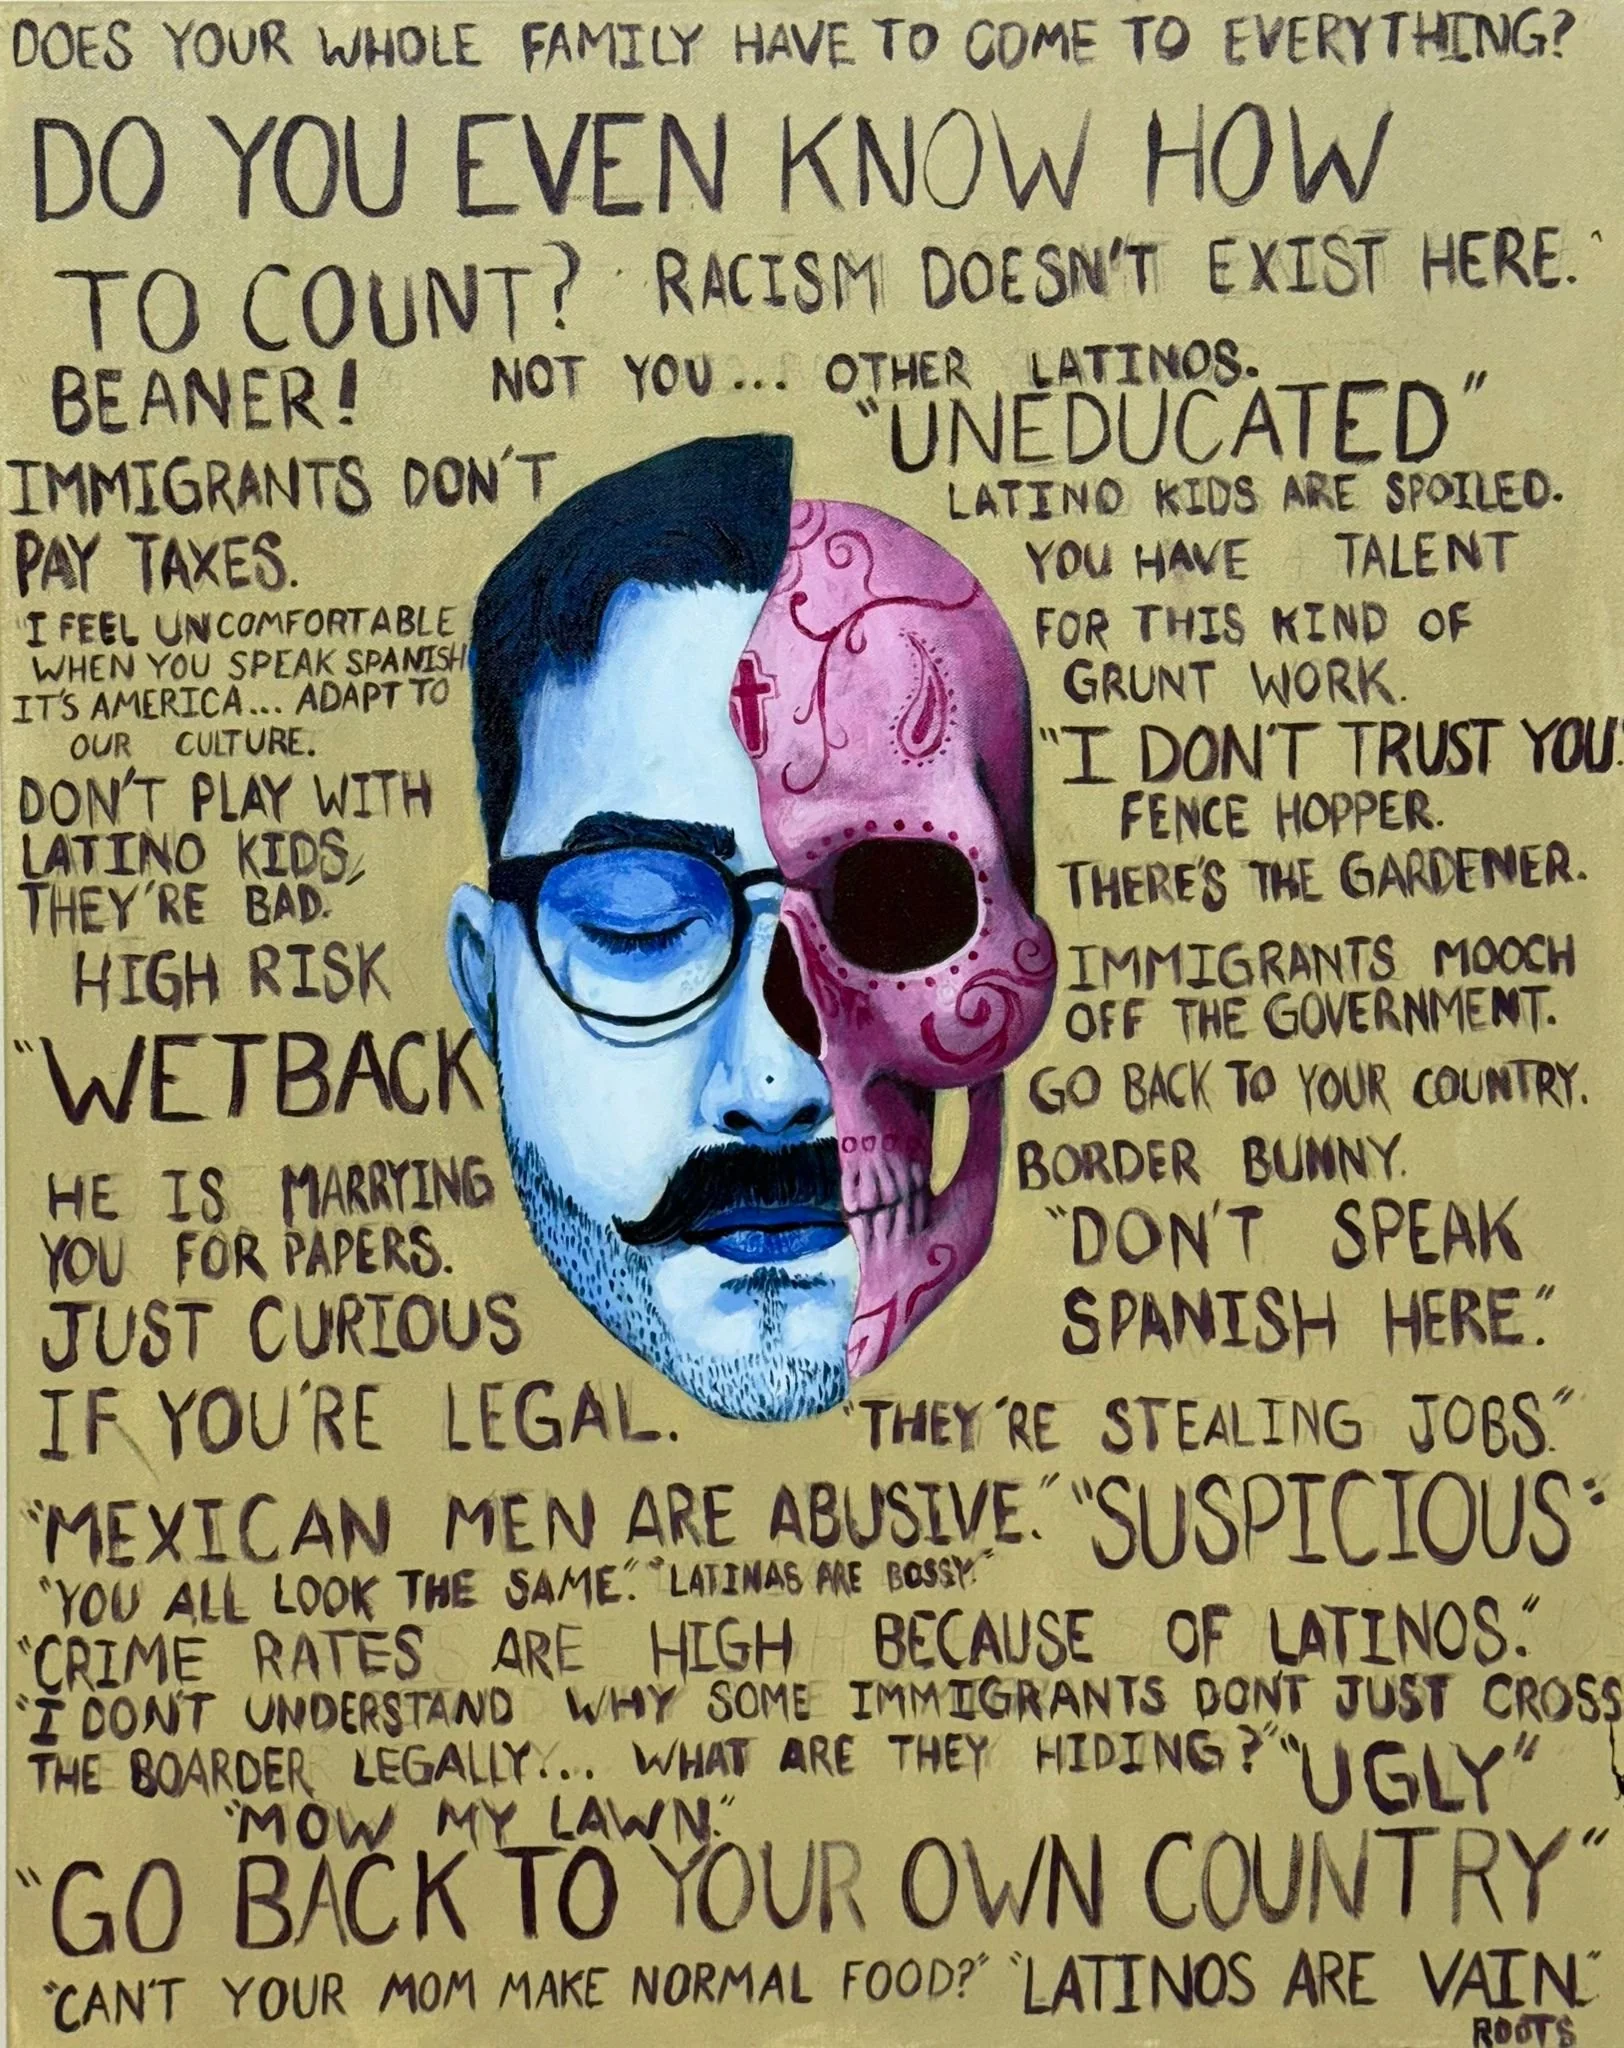 DOES YOUR WHOLE FAMILY HAVE TO COME TO EVERYTHING?
DO YOU EVEN KNOW HOW
TO COUNT?
RACISM DOESN'T EXIST HERE.
BEANER!
NOT YOU... OTHER LATINOS.
"UNEDUCATED"
IMMIGRANTS DON'T
PAY TAXES.
I FEEL UNCOMFORTABLE
WHEN YOU SPEAK SPANISH
IT'S AMERICA... ADAPT TO
OUR CULTURE.
DON'T PLAY WITH
LATINO KIDS,
THEY'RE BAD.
HIGH RISK
"WETBACK
HE IS MARRYING
YOU FOR PAPERS.
JUST CURIOUS
IF YOU'RE LEGAL.
LATINO KIDS ARE SPOILED.
YOU HAVE TALENT
FOR THIS KIND OF
GRUNT WORK.
"I DON'T TRUST YOU"
FENCE HOPPER.
THERE'S THE GARDENER.
IMMIGRANTS MOOCH
OFF THE GOVERNMENT.
GO BACK TO YOUR COUNTRY.
BORDER BUNNY.
"DON'T SPEAK
SPANISH HERE."
"THEY'RE STEALING JOBS."
"MEXICAN MEN ARE ABUSIVE." "SUSPICIOUS"
"YOU ALL LOOK THE SAME." "LATINAS ARE BOSSY."
"CRIME RATES ARE HIGH BECAUSE OF LATINOS."
"I DON'T UNDERSTAND WHY SOME IMMIGRANTS DON'T JUST CROSS
THE BOARDER LEGALLY... WHAT ARE THEY HIDING?" "UGLY"
"MOW MY LAWN."
"GO BACK TO YOUR OWN COUNTRY"
"CAN'T YOUR MOM MAKE NORMAL FOOD?" "LATINOS ARE VAIN."
ROOTS